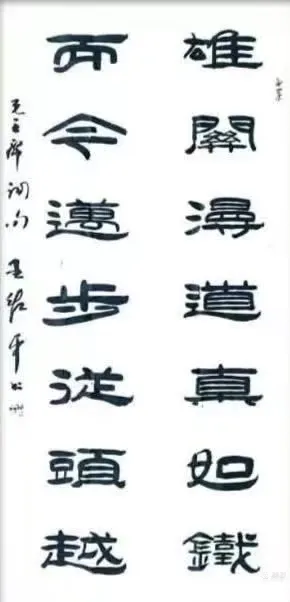 雄關漫道真如鐵
而今邁步從頭越
毛主席詞句